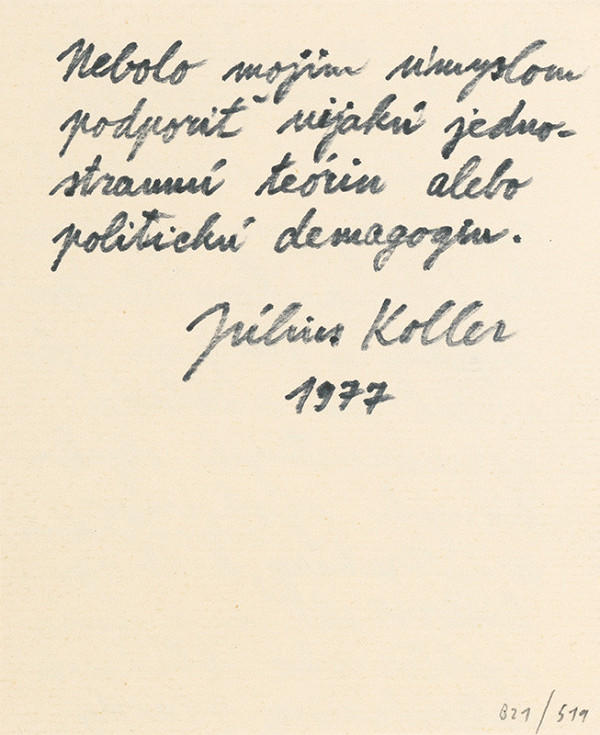 Nebolo mojím úmyslom
podporiť nijakú jedno-
strannú teóriu alebo
politickú demagogiu.
Július Koller
1977
821/519